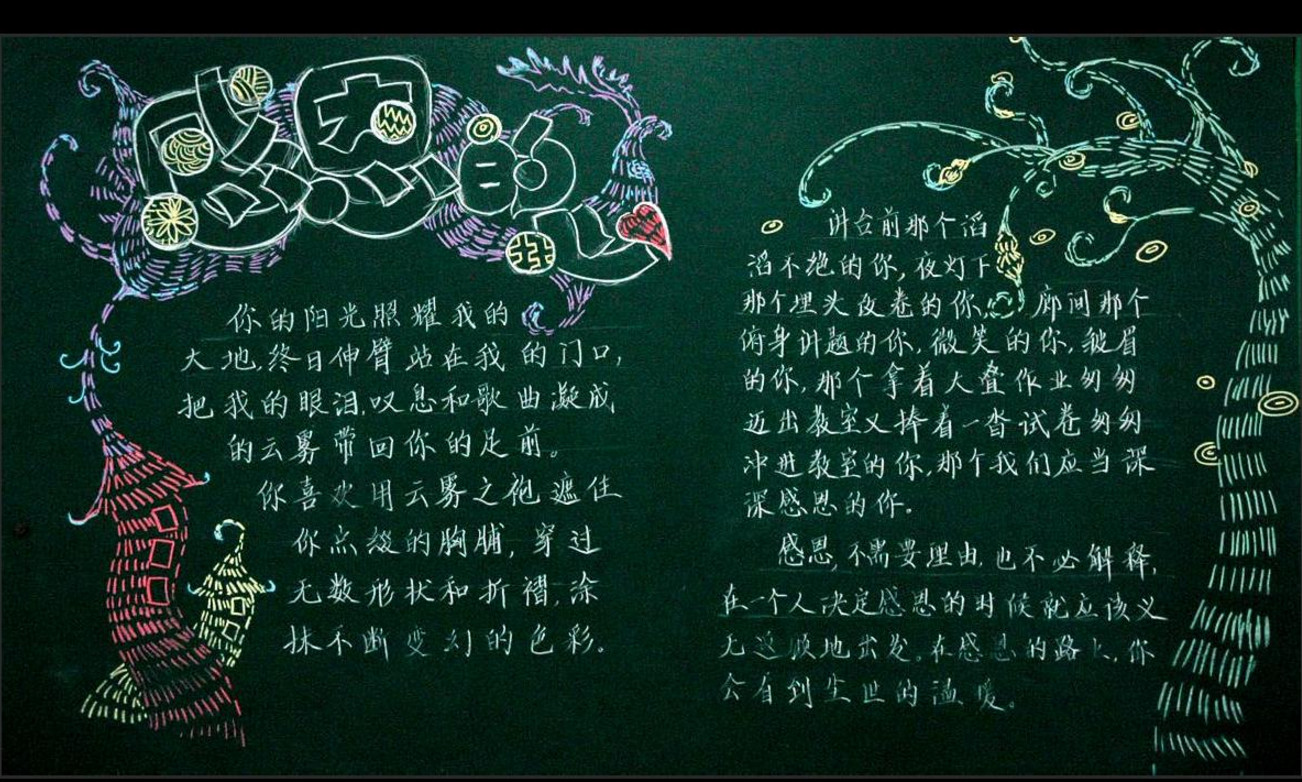 感恩的心
你的阳光照耀我的
大地,终日伸臂站在我的门口,
把我的眼泪.叹息和歌曲凝成
的云雾带回你的足前。
你喜欢用云雾之袍遮住
你点缀的胸脯,穿过
无数形状和折褶,涂
抹不断变幻的色彩。
讲台前那个滔
滔不绝的你,夜灯下
那个埋头改卷的你,廊间那个
俯身讲题的你,微笑的你,皱眉
的你,那个拿着大叠作业匆匆
迈出教室又捧着一沓试卷匆匆
冲进教室的你,那个我们应当深
深感恩的你.
感恩,不需要理由,也不必解释,
在一个人决定感恩的时候就应该义
无返顾地出发。在感恩的路上,你
会看到尘世的温暖。